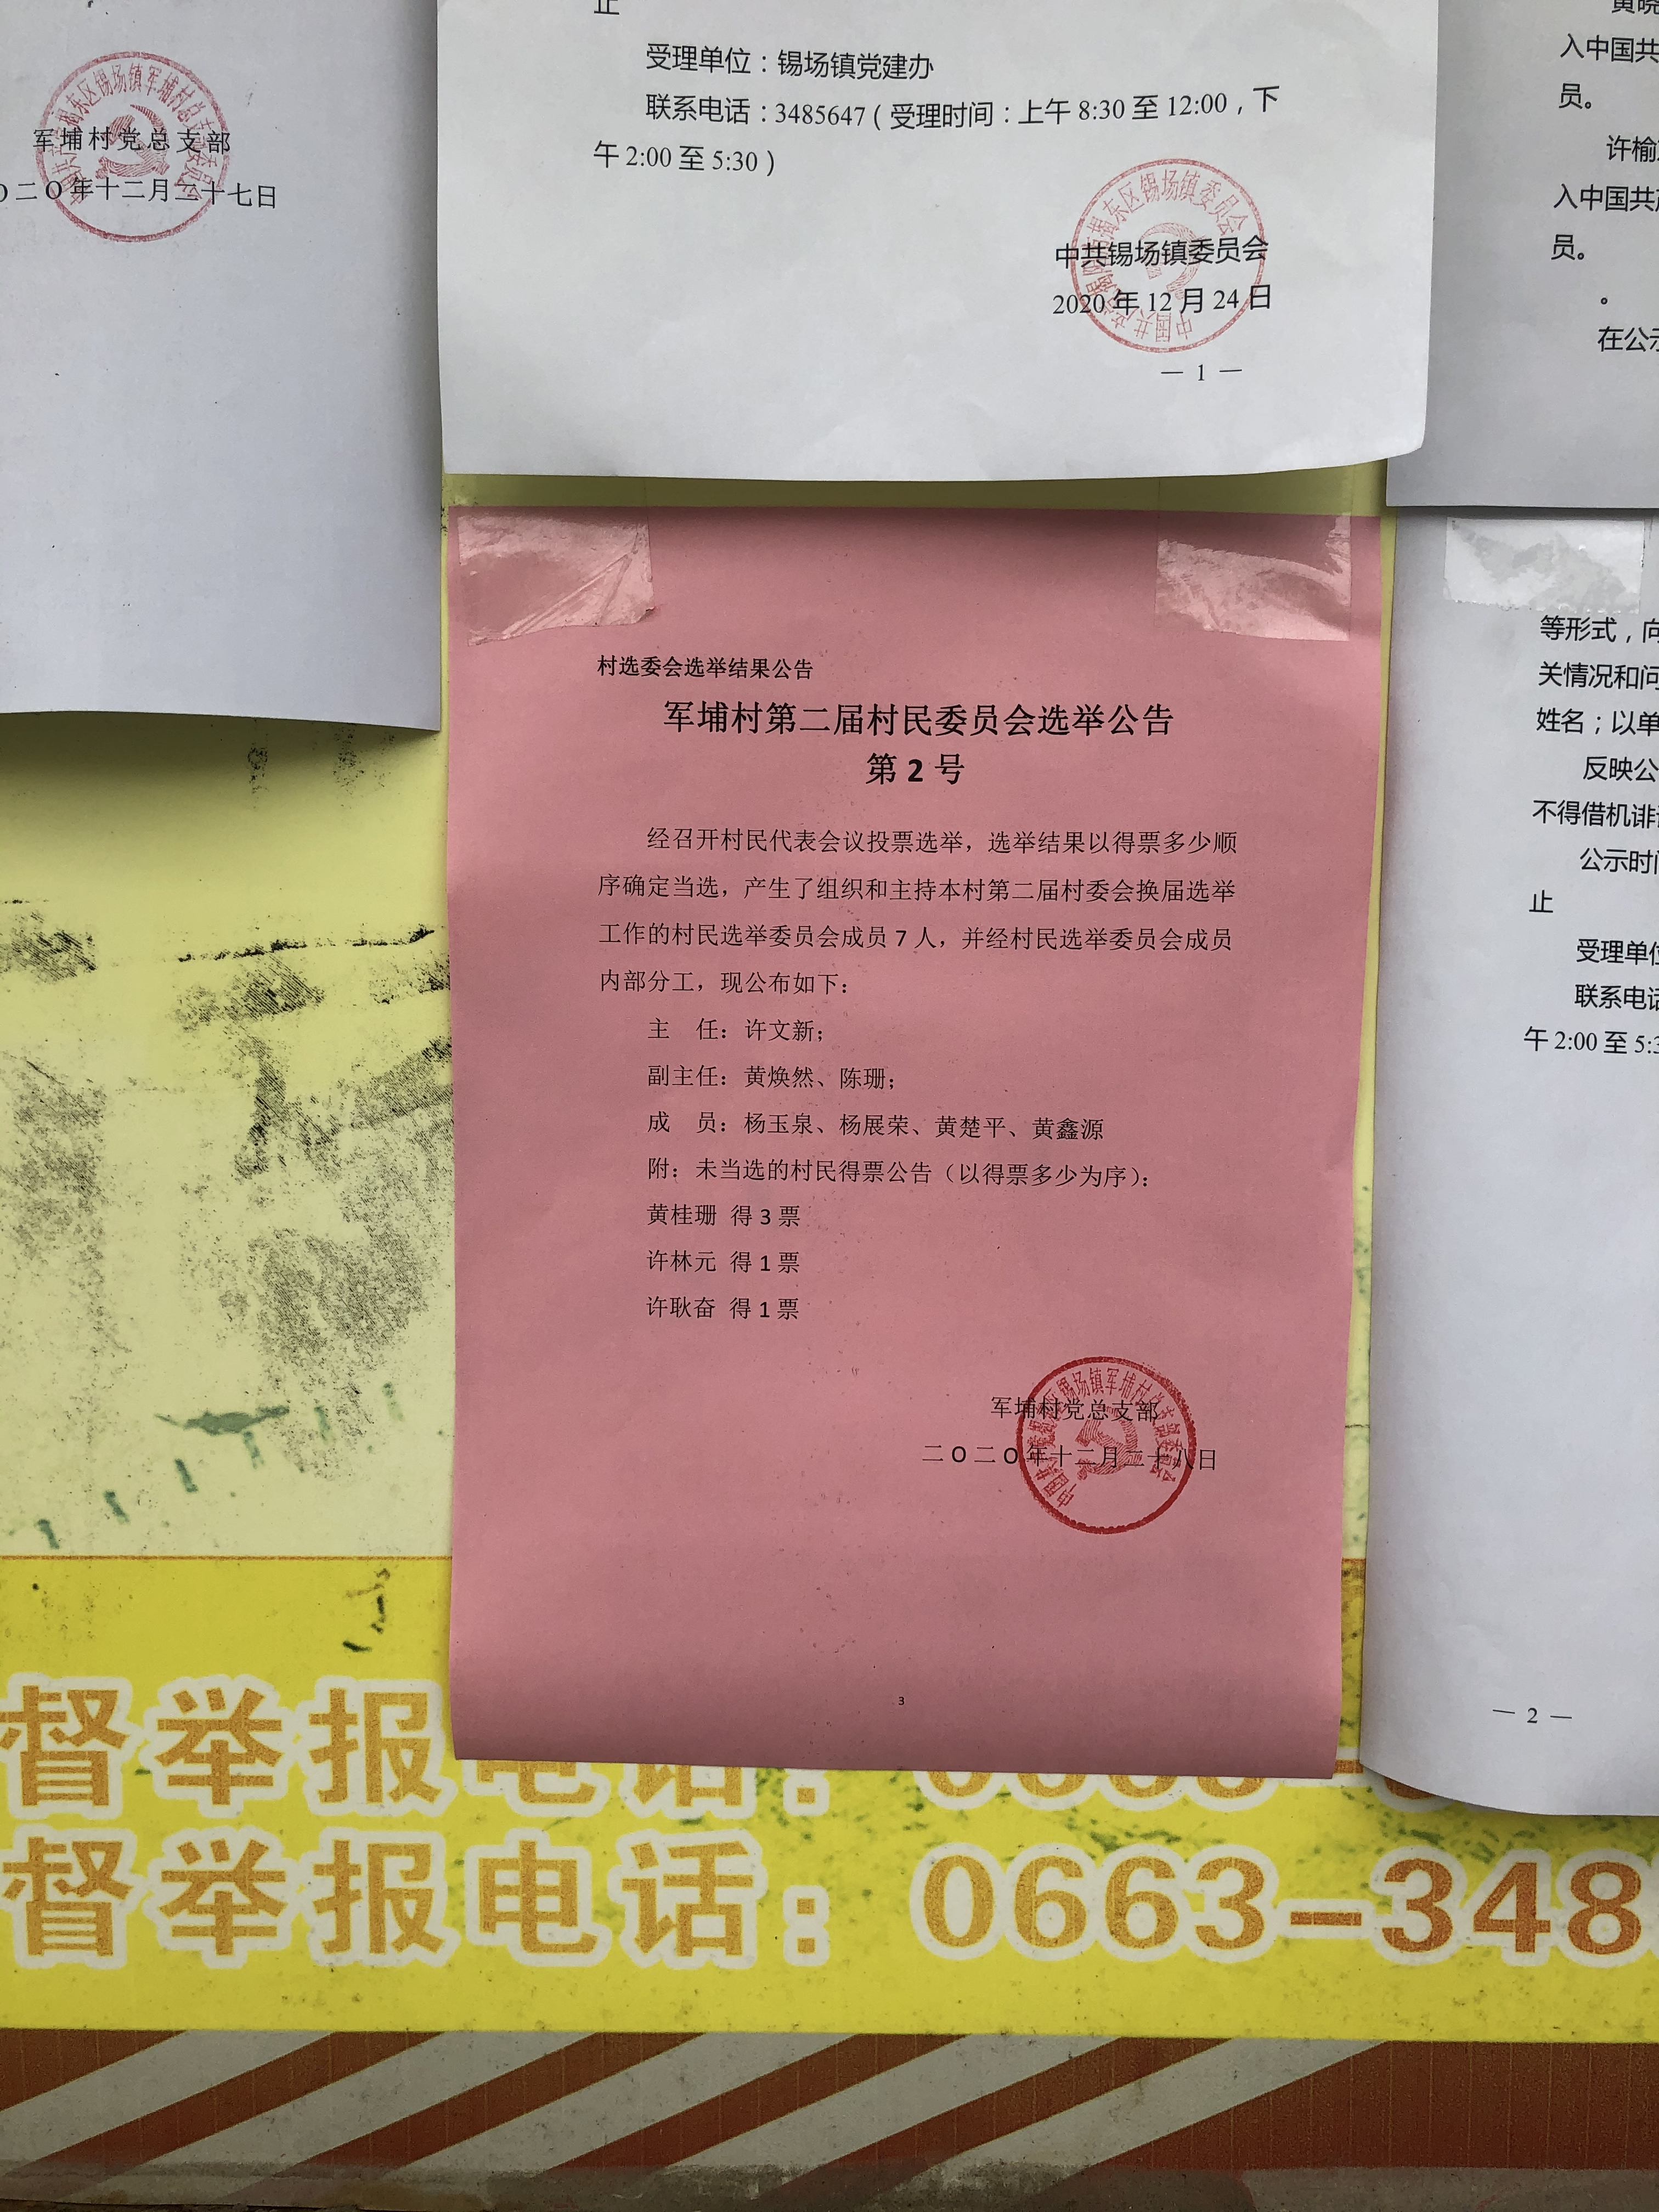 军埔村党总支部
二〇年十二月二十七日
止
受理单位：锡场镇党建办
联系电话：3485647（受理时间：上午 8:30 至 12:00，下
午 2:00 至 5:30）
中共锡场镇委员会
2020 年 12 月 24 日
— 1 —
入中国共
员。
许榆
入中国共
员。
。
在公示
村选委会选举结果公告
军埔村第二届村民委员会选举公告
第 2 号
经召开村民代表会议投票选举，选举结果以得票多少顺
序确定当选，产生了组织和主持本村第二届村委会换届选举
工作的村民选举委员会成员 7 人，并经村民选举委员会成员
内部分工，现公布如下：
主　任：许文新；
副主任：黄焕然、陈珊；
成　员：杨玉泉、杨展荣、黄楚平、黄鑫源
附：未当选的村民得票公告（以得票多少为序）：
黄桂珊 得 3 票
许林元 得 1 票
许耿奋 得 1 票
军埔村党总支部
二〇二〇年十二月二十八日
3
等形式，向
关情况和问
姓名；以单
反映公
不得借机诽
公示时间
止
受理单位
联系电话
午 2:00 至 5:3
— 2 —
督举报电话：
督举报电话：0663-348